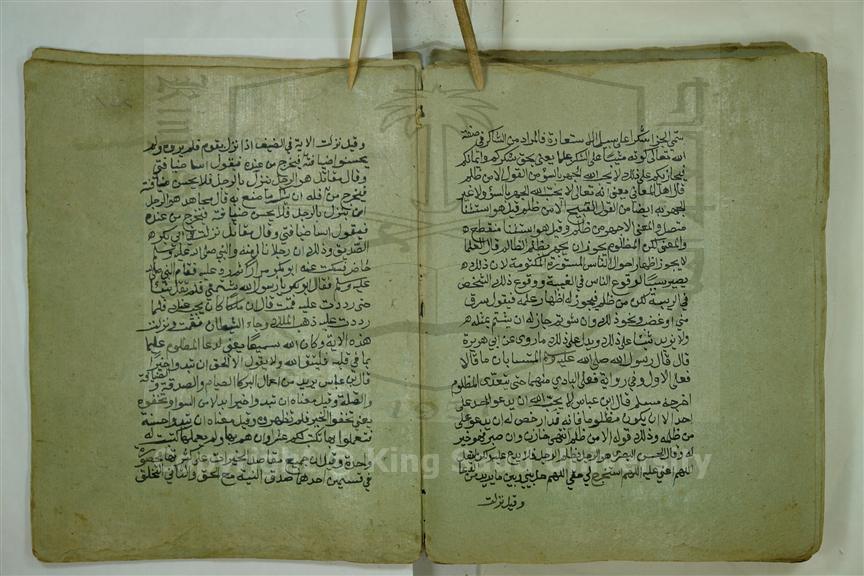 سمى الجزاء شكرا على سبيل الاستعارة فالمراد من الشاكر في صفة
الله تعالى كونه مثيبا على الشكر عليما يعني بحق شكركم وايمانكم
فيجازيكم على ذلك لا يحب الله الجهر بالسوء من القول الا من ظلم
قال اهل المعاني يعني انه تعالى لا يحب الله الجهر بالسوء ولا غير
الجهر به ايضا من القول القبيح الا من ظلم قيل هو استثناء
متصل والمعنى الا جهر من ظلم وقيل هو استثناء منقطع
والمعنى لكن المظلوم يجوز ان يجهر بظلم الظالم قال العلما
لا يجوز اظهار احوال الناس المستورة المكتومة لان ذلك
يصير سببا لوقوع الناس في الغيبة ووقوع ذلك الشخص
في الريبة لكن من ظلم فيجوز له اظهار ظلمه فيقول سرق
مني او غصب ونحو ذلك وان شتم جاز له ان يشتم بمثله
ولا يزيد شيئا على ذلك ويدل على ذلك ما روي عن ابي هريرة
قال قال رسول الله صلى الله عليه وسلم المتسابان ما قالا
فعلى الاول وفي رواية فعلى البادي منهما حتى يتعدى المظلوم
اخرجه مسلم قال ابن عباس لا يحب الله ان يدعو احد على
احد الا ان يكون مظلوما فانه قد ارخص له ان يدعو على
من ظلمه وذلك قوله الا من ظلم وان صبر فهو خير
له وقال الحسن البصري هو الرجل يظلم الرجل فلا يدع عليه ولكن ليقل
اللهم اعني عليه اللهم استخرج لي حقي اللهم حل بيني وبين ما يريد
وقيل نزلت
وقيل نزلت الاية في الضيف اذا نزل بقوم فلم يقروه ولم
يحسنوا ضيافته فيخرج من عنده فيقول اساء ضيافتي
وقال مقاتل هو الرجل ينزل بالرجل فلا يحسن ضيافته
فيخرج من فله ان يشكو ما صنع به قال مجاهد هو الرجل
ينزل بالرجل فلا يحسن ضيافته فيخرج من عنده
فيقول اساء ضيافتي وقال مقاتل نزلت في ابي بكر
الصديق وذلك ان رجلا نال منه والنبي صلى الله عليه وسلم
حاضر فسكت عنه ابو بكر مرارا ثم رد عليه فقام النبي صلى الله
عليه وسلم فقال ابو بكر يا رسول الله شتمني فلم تقل شيئا
حتى رددت عليه قمت قال ان ملكا كان يجيب عنك فلما
رددت عليه ذهب الملك وجاء الشيطان فقمت ونزلت
هذه الاية وكان الله سميعا يعني لدعاء المظلوم عليما
بما في قلبه فليتق الله ولا يقول الا الحق ان تبدوا خيرا
قال ابن عباس يريد من اعمال البر كالصيام والصدقة والضيافة
والصلة وقيل معناه ان تبدوا خيرا بدلا من السوء او تخفوه
يعني تخفوا الخير فلم تظهروه وقيل معناه ان تبدوا حسنة
فتعملوا بها تكتب لكم عشرا وان هم بها ولم يعملها كتبت له
واحدة وقيل ان جميع مقاصد الخيرات على كثرتها محصورة
في قسمين احدهما صدق النية مع الحق والثاني التخلق
Copyright © King Saud University